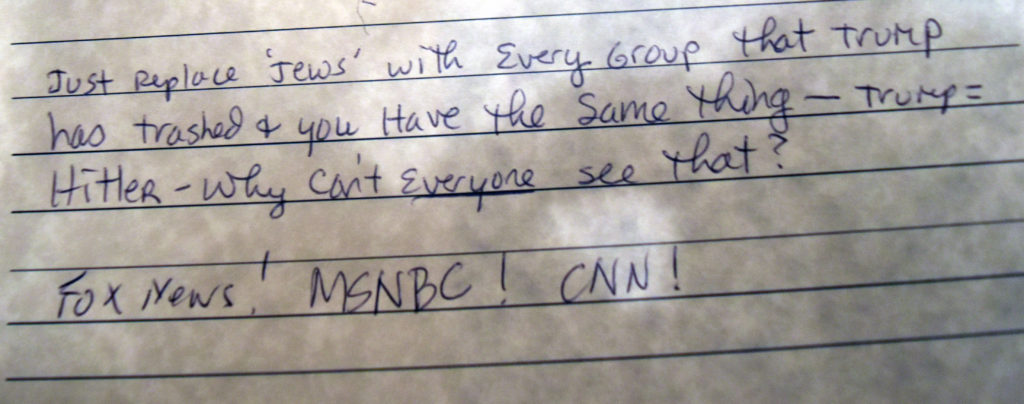 Just Replace 'Jews' with Every Group that Trump
has trashed & you Have the Same thing — Trump =
Hitler - Why Can't Everyone see that?
Fox News! MSNBC! CNN!